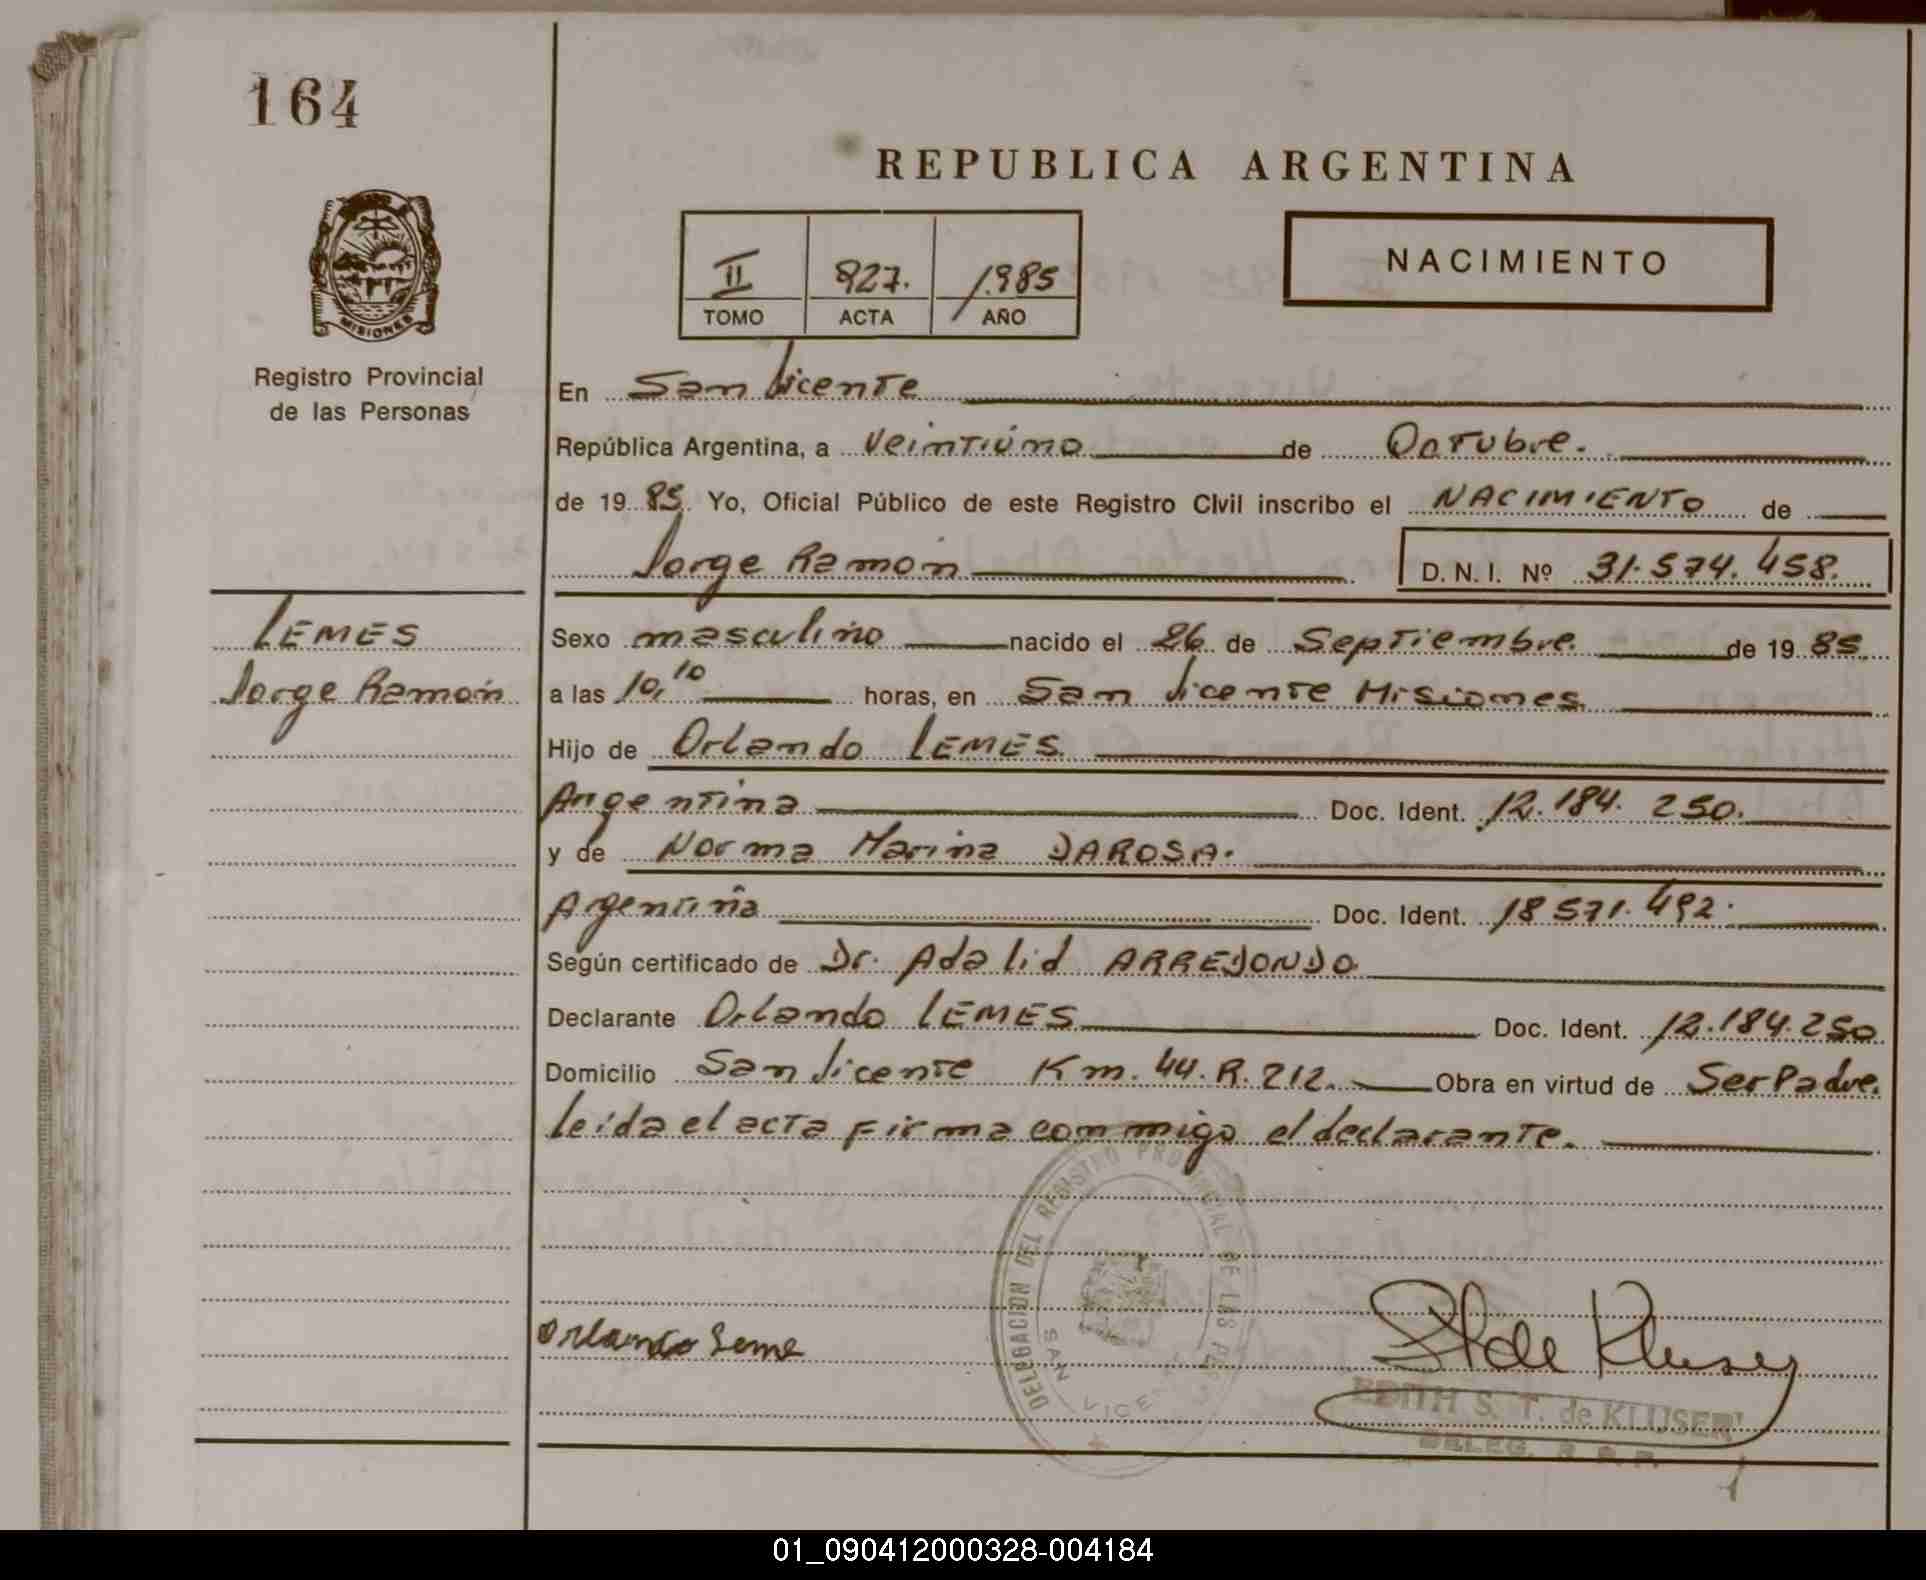 164
REPUBLICA ARGENTINA
II 927. 1985
TOMO ACTA AÑO
NACIMIENTO
MISIONES
Registro Provincial
de las Personas
En San Vicente
República Argentina, a Veintiúno de Octubre.
de 1985. Yo, Oficial Público de este Registro Civil inscribo el NACIMIENTO de
Jorge Ramón D. N. I. Nº 31.574.458.
LEMES
Jorge Ramón
Sexo masculino nacido el 26 de Septiembre. de 1985
a las 10,10 horas, en San Vicente Misiones.
Hijo de Orlando LEMES.
Argentina Doc. Ident. 12.184.250.
y de Norma Marina DAROSA.
Argentina Doc. Ident. 18 571.492.
Según certificado de Dr. Adalid ARREDONDO
Declarante Orlando LEMES Doc. Ident. 12.184.250
Domicilio San Vicente Km. 44. R. 212. Obra en virtud de Ser Padre.
leida el acta firma conmigo el declarante.
DELEGACION DEL REGISTRO PROVINCIAL DE LAS
SAN VICE
Orlando Leme
EDITH S. T. de KLUSER
DELEG. R. P. P.
01_090412000328-004184